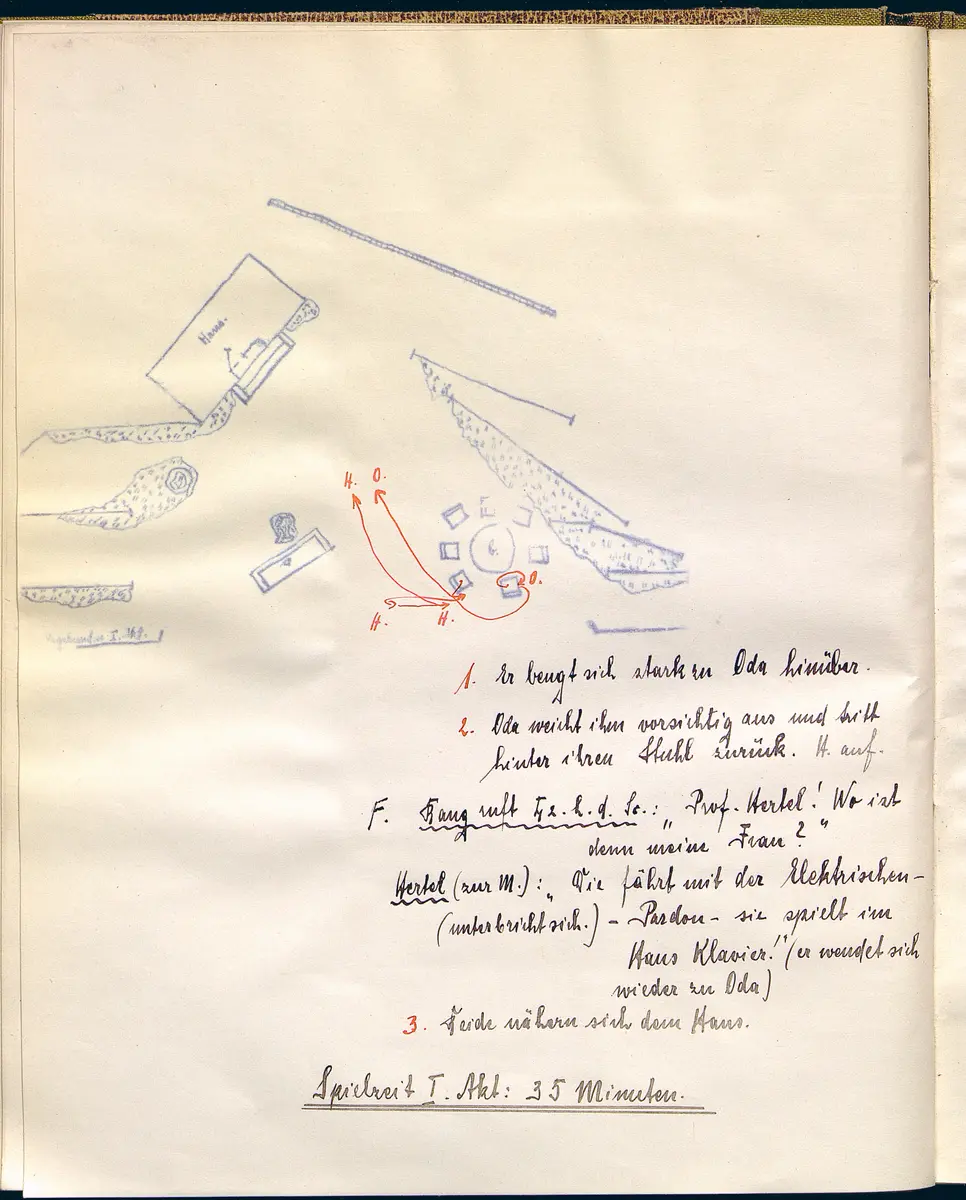 Haus.
H. O.
6.
O.
H. H.
I. Akt.
1. Er beugt sich stark zu Oda hinüber.
2. Oda weicht ihm vorsichtig aus und tritt
hinter ihren Stuhl zurück. H. auf.
F. Rang ruft h. d. Sc.: „Prof. Hertel! Wo ist
denn meine Frau?"
Hertel (zur M.): „Die fährt mit der Elektrischen-
(unterbricht sich.) - Pardon - sie spielt im
Haus Klavier!" (er wendet sich
wieder zu Oda)
3. Beide nähern sich dem Haus.
Spielzeit I. Akt: 35 Minuten.